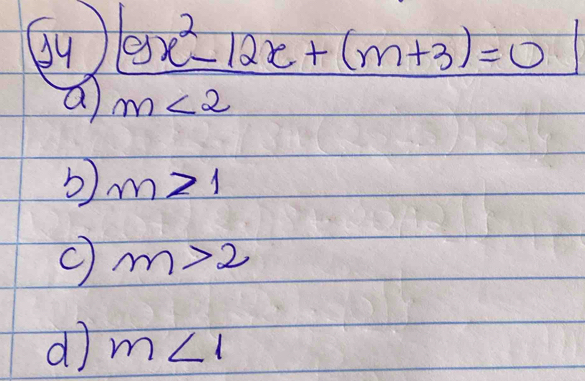 14) 9x² - 12x + (m+3) = 0
a) m < 2
b) m > 1
c) m > 2
d) m < 1